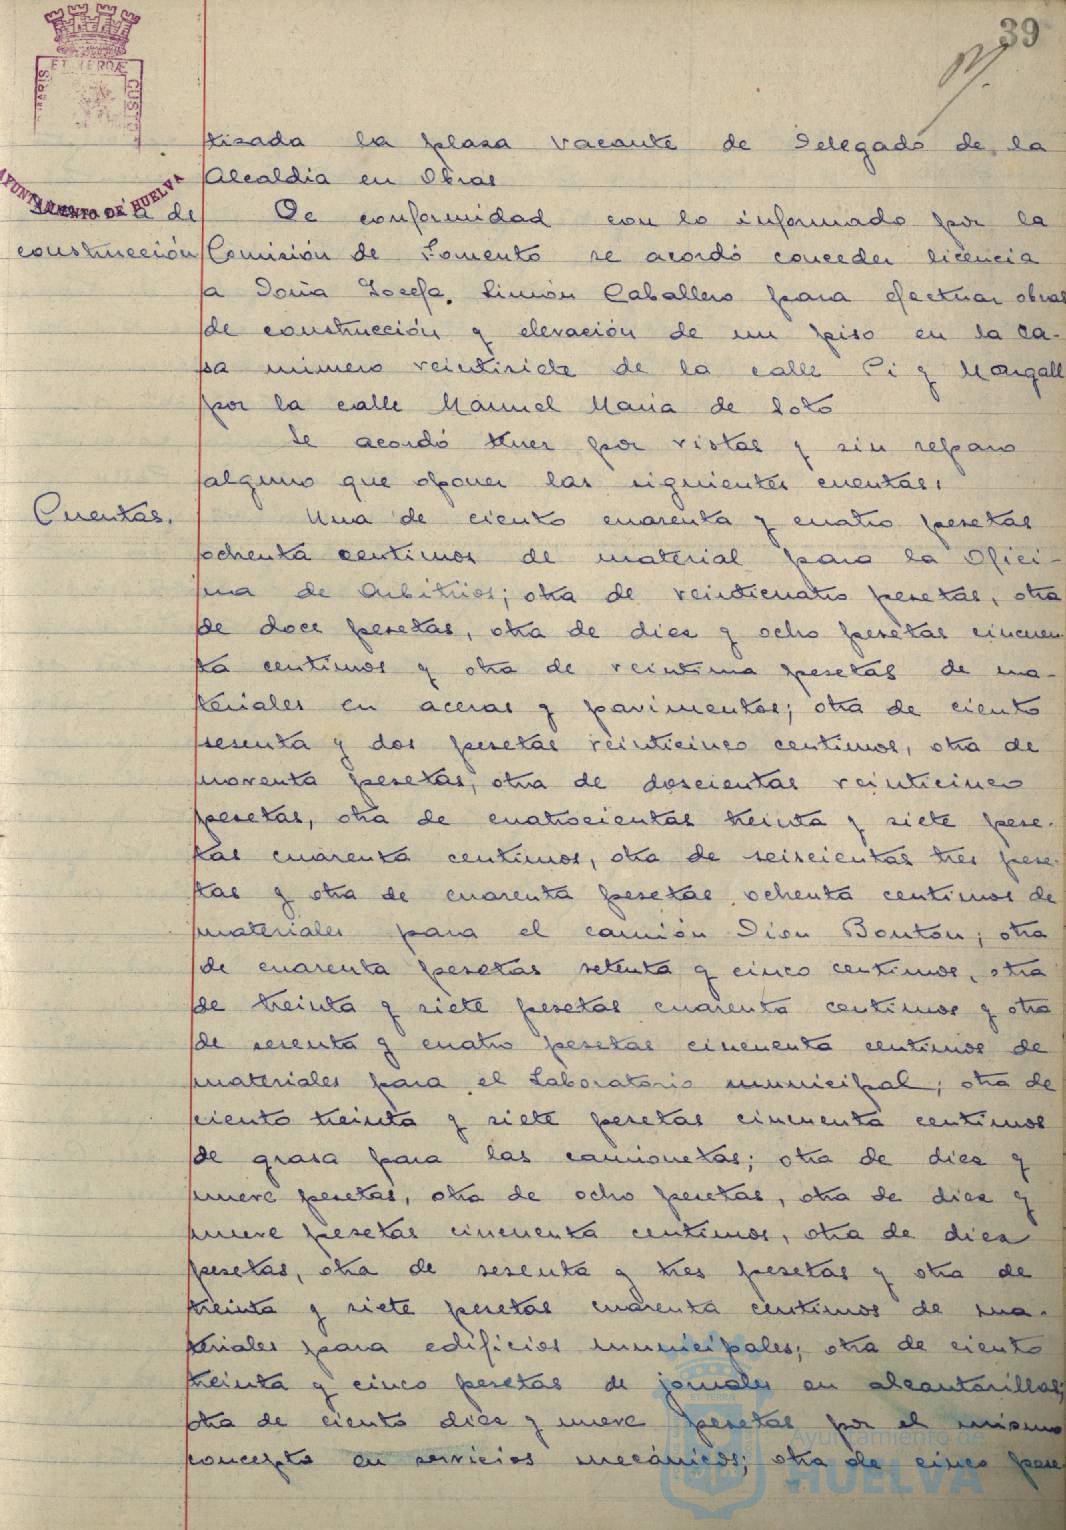 39
tizada la plaza vacante de Delegado de la
Alcaldia en Obras
AYUNTAMIENTO DE HUELVA
a de
construcción
De conformidad con lo informado por la
Comisión de Fomento se acordó conceder licencia
a Doña Josefa Limón Caballero para efectuar obras
de construcción y elevación de un piso en la ca-
sa número veintisiete de la calle Pi y Margall
por la calle Manuel Maria de Soto
Se acordó tener por vistas y sin reparo
alguno que oponer las siguientes cuentas:
Cuentas.
Una de ciento cuarenta y cuatro pesetas
ochenta centimos de material para la Ofici-
na de Arbitrios; otra de veinticuatro pesetas, otra
de doce pesetas, otra de diez y ocho pesetas cincuen-
ta centimos y otra de veintiuna pesetas de ma-
teriales en aceras y pavimentos; otra de ciento
sesenta y dos pesetas veinticinco centimos, otra de
noventa pesetas, otra de doscientas veinticinco
pesetas, otra de cuatrocientas treinta y siete pese-
tas cuarenta centimos, otra de seiscientas tres pese-
tas y otra de cuarenta pesetas ochenta centimos de
materiales para el camión Dion Bouton; otra
de cuarenta pesetas setenta y cinco centimos, otra
de treinta y siete pesetas cuarenta centimos y otra
de sesenta y cuatro pesetas cincuenta centimos de
materiales para el Laboratorio municipal; otra de
ciento treinta y siete pesetas cincuenta centimos
de grasa para las camionetas; otra de diez y
nueve pesetas, otra de ocho pesetas, otra de diez y
nueve pesetas cincuenta centimos, otra de diez
pesetas, otra de sesenta y tres pesetas y otra de
treinta y siete pesetas cuarenta centimos de ma-
teriales para edificios municipales; otra de ciento
treinta y cinco pesetas de jornales en alcantarillas;
otra de ciento diez y nueve pesetas por el mismo
concepto en servicios mecánicos; otra de cinco pese-
Ayuntamiento de
HUELVA